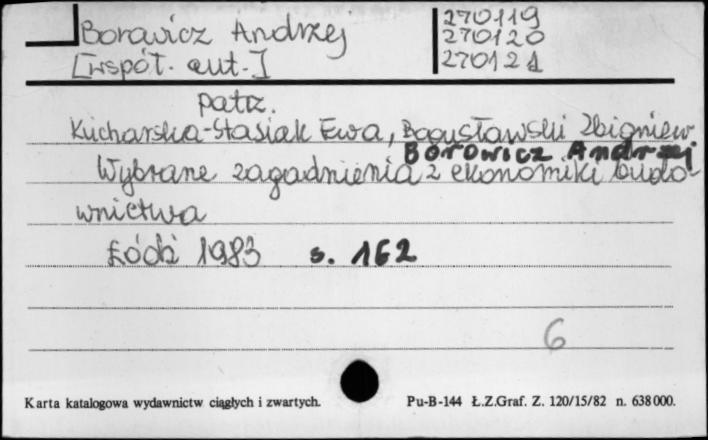 Borowicz Andrzej
[współ. aut.]
270119
270120
270121
patrz.
Kucharska-Stasiak Ewa, Bogusławski Zbigniew
Borowicz Andrzej
Wybrane zagadnienia z ekonomiki budo-
wnictwa
Łódź 1983 s. 162
6
Karta katalogowa wydawnictw ciągłych i zwartych.
Pu-B-144 Ł.Z.Graf. Z. 120/15/82 n. 638000.